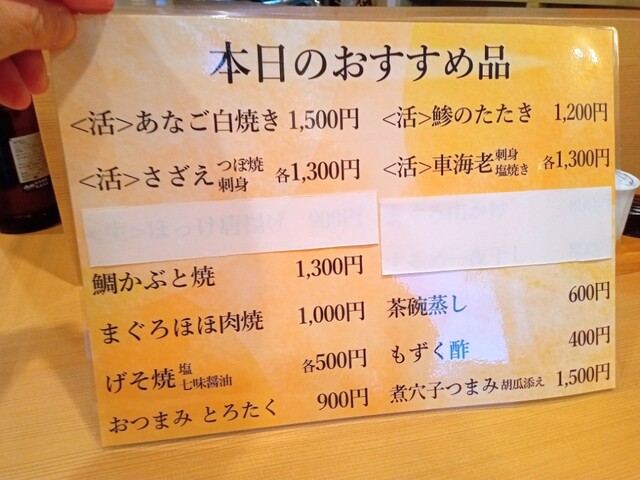 本日のおすすめ品
<活>あなご白焼き 1,500円
<活>さざえ つぼ焼 刺身 各1,300円
鯛かぶと焼 1,300円
まぐろほほ肉焼 1,000円
げそ焼 塩 七味醤油 各500円
おつまみ とろたく 900円
<活>鯵のたたき 1,200円
<活>車海老 刺身 塩焼き 各1,300円
茶碗蒸し 600円
もずく酢 400円
煮穴子つまみ 胡瓜添え 1,500円